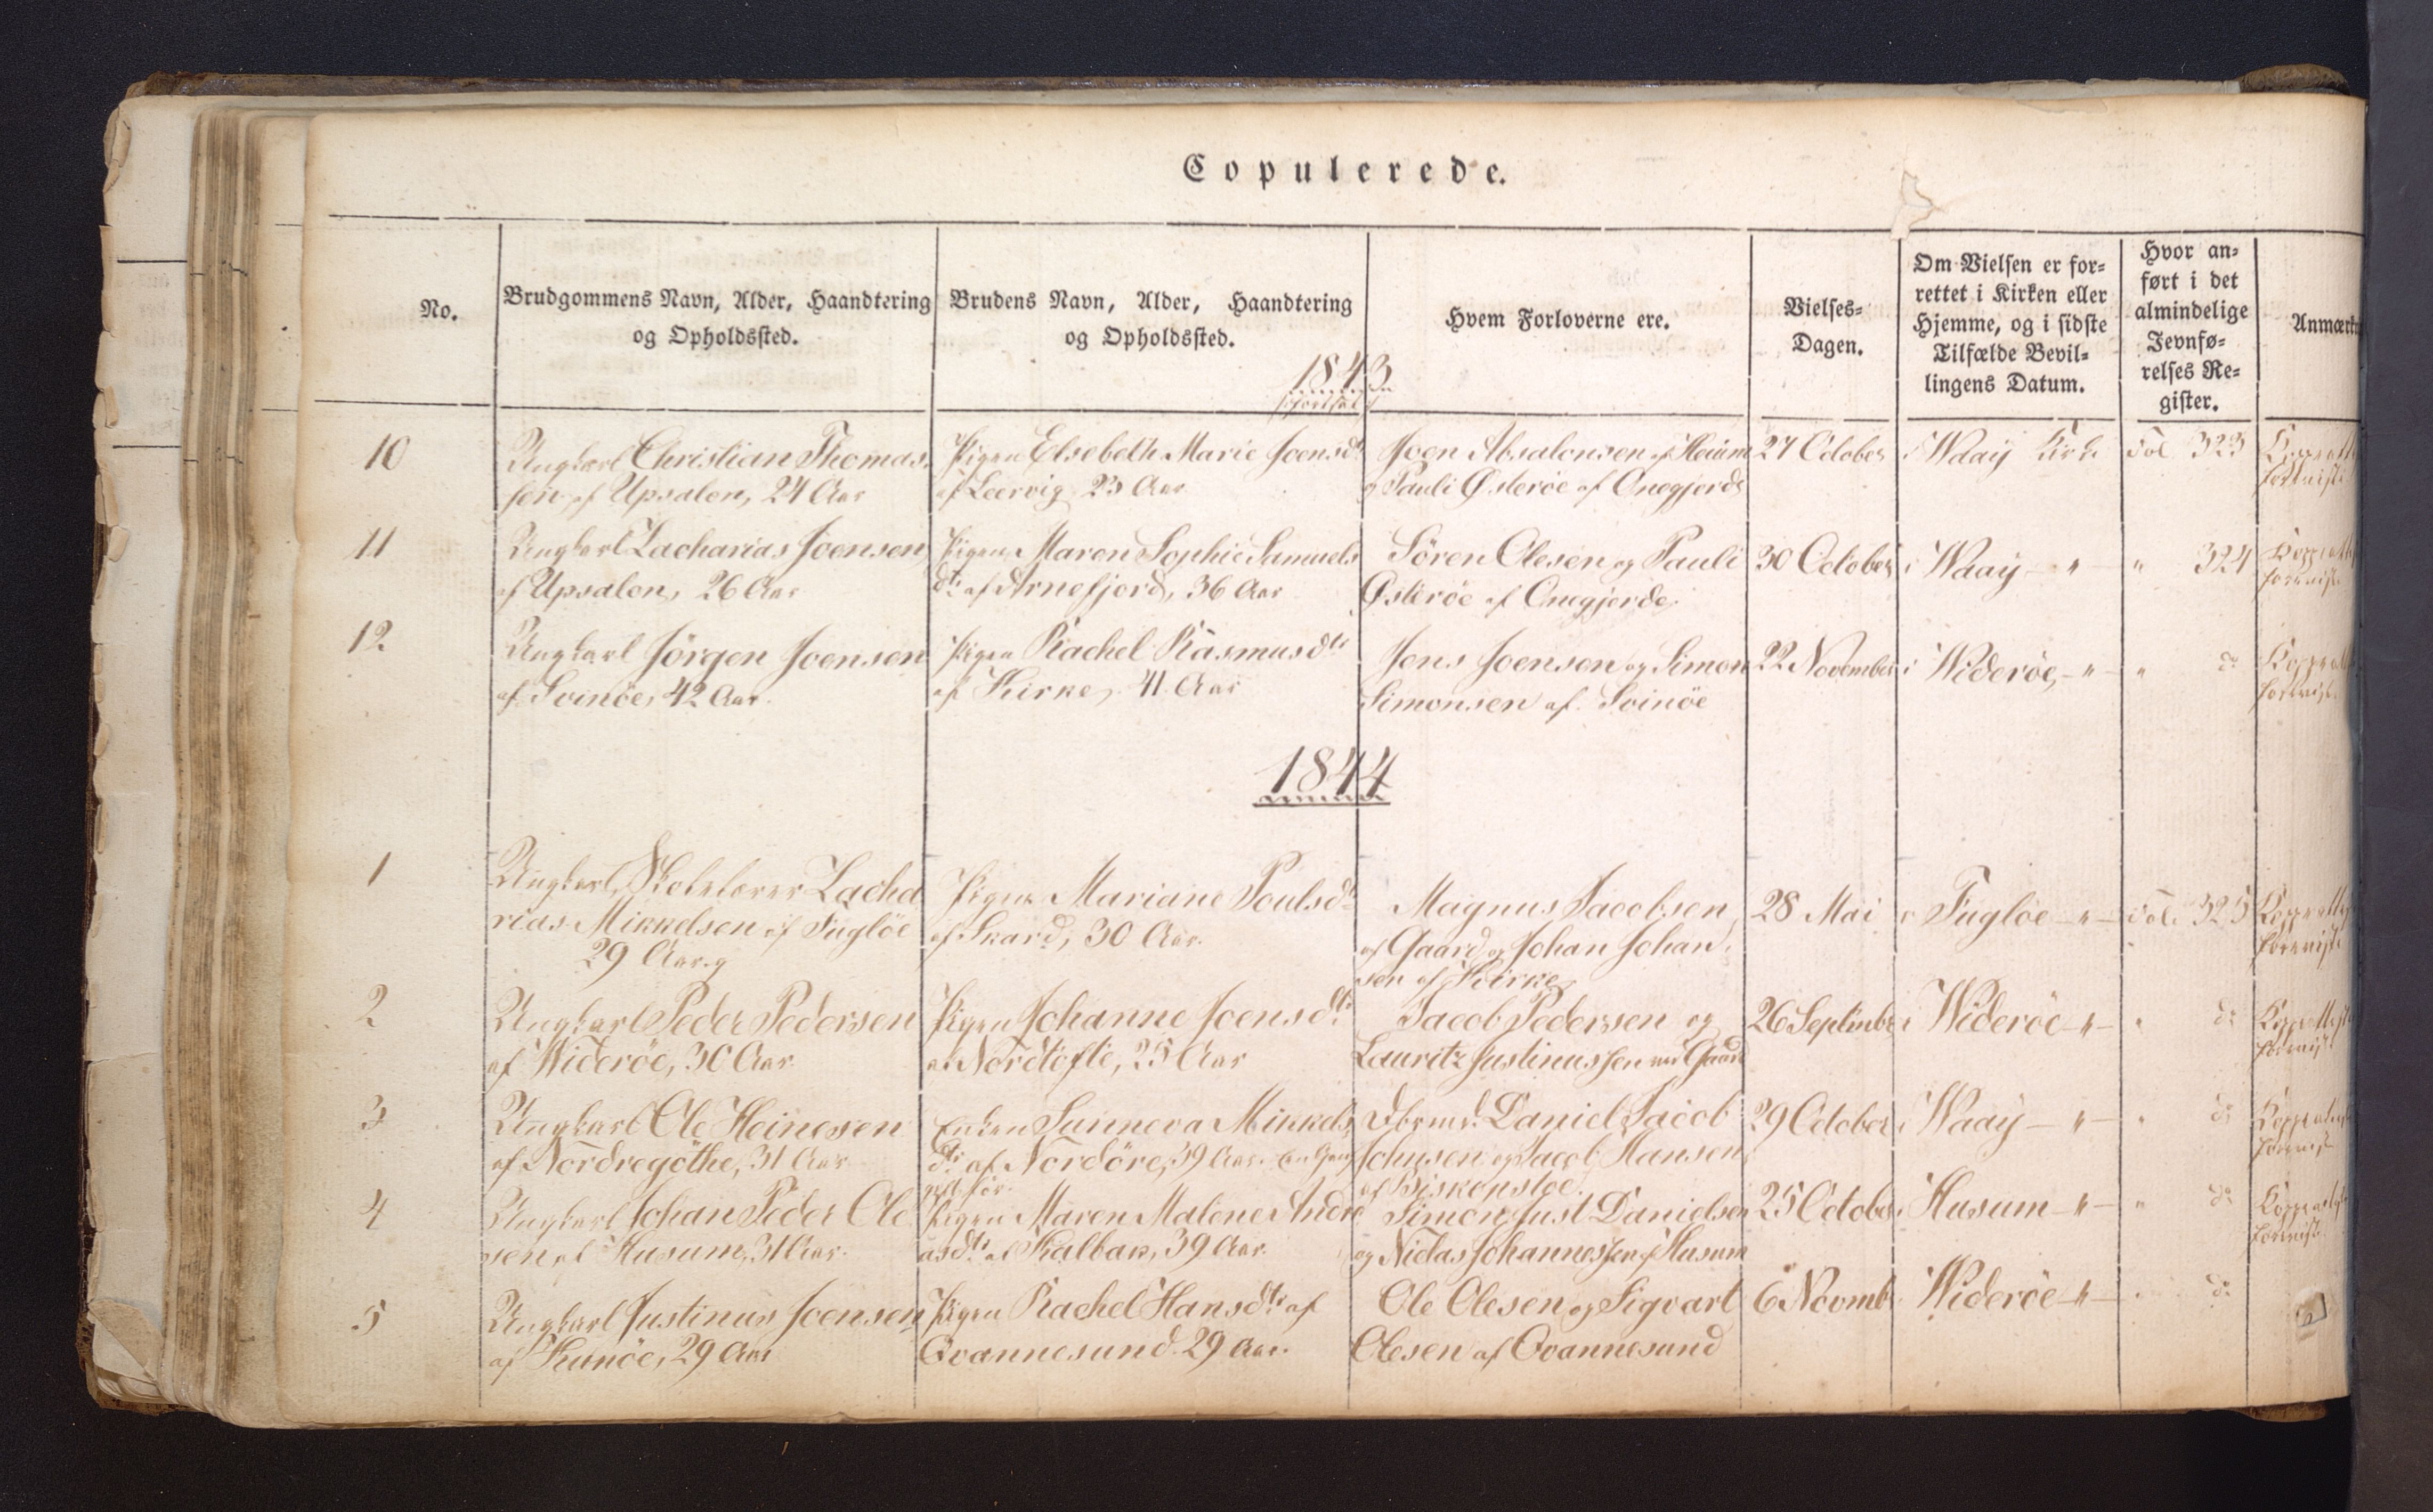 Copulerede.
No.
Brudgommens Navn, Alder, Haandtering
og Opholdssted.
Brudens Navn, Alder, Haandtering
og Opholdssted.
Hvem Forloverne ere.
Vielses-
Dagen.
Om Vielsen er for-
rettet i Kirken eller
Hjemme, og i sidste
Tilfælde Bevil-
lingens Datum.
Hvor an-
ført i det
almindelige
Jevnfø-
relses Re-
gister.
Anmærkn
1843
fortsat
10
Ungkarl Christian Thomas-
sen af Upsalen, 24 Aar
Pigen Elsebeth Marie Joensdtr
af Leervig 23 Aar
Joen Absalonsen af
og Pauli Østerøe af Onegjerde
27 October
i Waaij Kirke
Fol 323
Koppeattest
foreviist
11
Ungkarl Zacharias Joensen
af Upsalen, 26 Aar
Pigen Maren Sophie Samuels
dtr af Arnefjord, 36 Aar
Sören Olesen og Pauli
Østerøe af Onegjerde
30 October
i Waaij — " —
" 324
foreviist
12
Ungkarl Jörgen Joensen
af Svinöe, 42 Aar.
Pigen Rachel Rasmusdtr
af Kirke, 41 Aar
Jens Joensen og Simon
Simonsen af Svinöe
22 November
i Widerøe, — " —
" do
foreviist
1844
1
Ungkarl, Skolelærer Zacha
rias Mikkelsen af Fugløe
29 Aar.
Pigen Mariane Poulsdr
af Skard, 30 Aar.
Magnus Jacobsen
af Gaard og Johan Johan-
sen af Kirke
28 Mai
i Fugløe — " —
Fol. 325
foreviist
2
Ungkarl Peder Pedersen
af Widerøe, 30 Aar.
Pigen Johanne Joensdtr
af Nordtöfte, 25 Aar
Jacob Pedersen og
Lauritz Justinussen ved Gaard
26 Septembr
i Widerøe — " —
" do
Koppeattest
foreviist
3
Ungkarl Ole Heinesen
af Nordregöthe, 31 Aar
Enken Sunneva Mikkels
dtr af Nordöre, 39 Aar. en Gang
gift før.
Dbrmd. Daniel Jacob
Johnsen og Jacob Hansen
af Biskopstøe.
29 October
i Waaij — " —
" do
foreviist
4
Ungkarl Johan Peder Ole
sen af Husum, 31 Aar.
Pigen Maren Malene Andre
asdtr af Kalbak, 39 Aar.
Simon Just Danielsen
og Niclas Johannessen af Husum
25 October
i Husum — " —
" do
foreviist
5
Ungkarl Justinus Joensen
af Kunöe, 29 Aar
Pigen Rachel Hansdtr af
Qvannesund 29 Aar.
Ole Olesen og Sigvart
Olesen af Qvannesund
6 Novmb
Widerøe — " —
" do